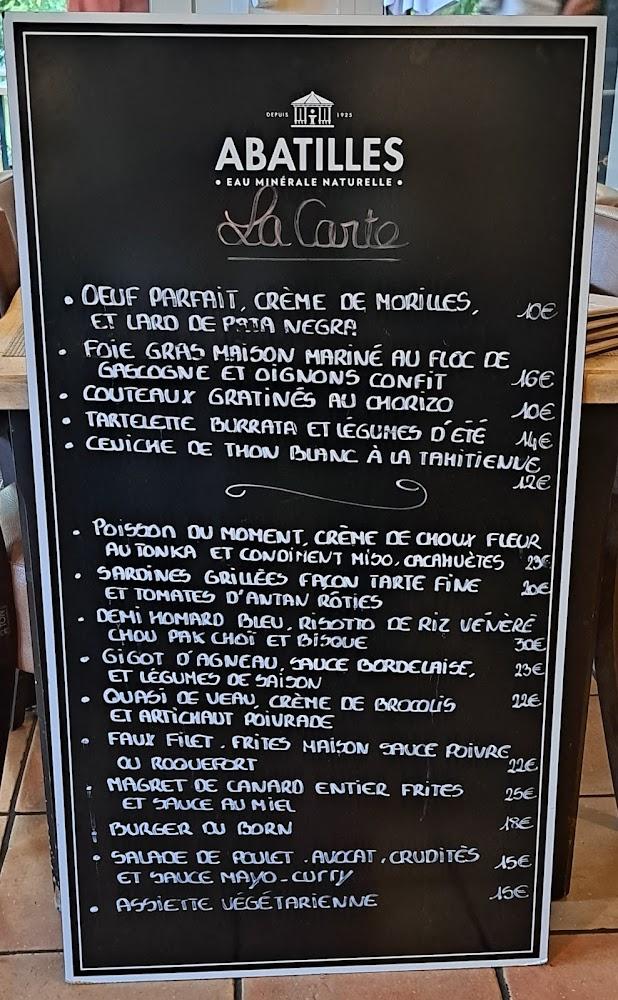 DEPUIS 1925
ABATILLES
• EAU MINÉRALE NATURELLE •
La Carte
• OEUF PARFAIT, CRÈME DE MORILLES, 10€
ET LARD DE PATA NEGRA
• FOIE GRAS MAISON MARINÉ AU FLOC DE
GASCOGNE ET OIGNONS CONFIT 16€
• COUTEAUX GRATINÉS AU CHORIZO 10€
• TARTELETTE BURRATA ET LÉGUMES D'ÉTÉ 14€
• CEVICHE DE THON BLANC À LA TAHITIENNE
12€
• POISSON DU MOMENT, CRÈME DE CHOUX FLEUR
AU TONKA ET CONDIMENT MISO, CACAHUÈTES 23€
• SARDINES GRILLÉES FAÇON TARTE FINE 20€
ET TOMATES D'ANTAN RÔTIES
• DEMI HOMARD BLEU, RISOTTO DE RIZ VÉNÉRÉ
CHOU PAK CHOÏ ET BISQUE 30€
• GIGOT D'AGNEAU, SAUCE BORDELAISE, 23€
ET LÉGUMES DE SAISON
• QUASI DE VEAU, CRÈME DE BROCOLIS 22€
ET ARTICHAUT POIVRADE
• FAUX FILET, FRITES MAISON SAUCE POIVRE
OU ROQUEFORT 22€
• MAGRET DE CANARD ENTIER FRITES 25€
ET SAUCE AU MIEL
• BURGER DU BORN 18€
• SALADE DE POULET, AVOCAT, CRUDITÉS 15€
ET SAUCE MAYO-CURRY
• ASSIETTE VÉGÉTARIENNE 15€